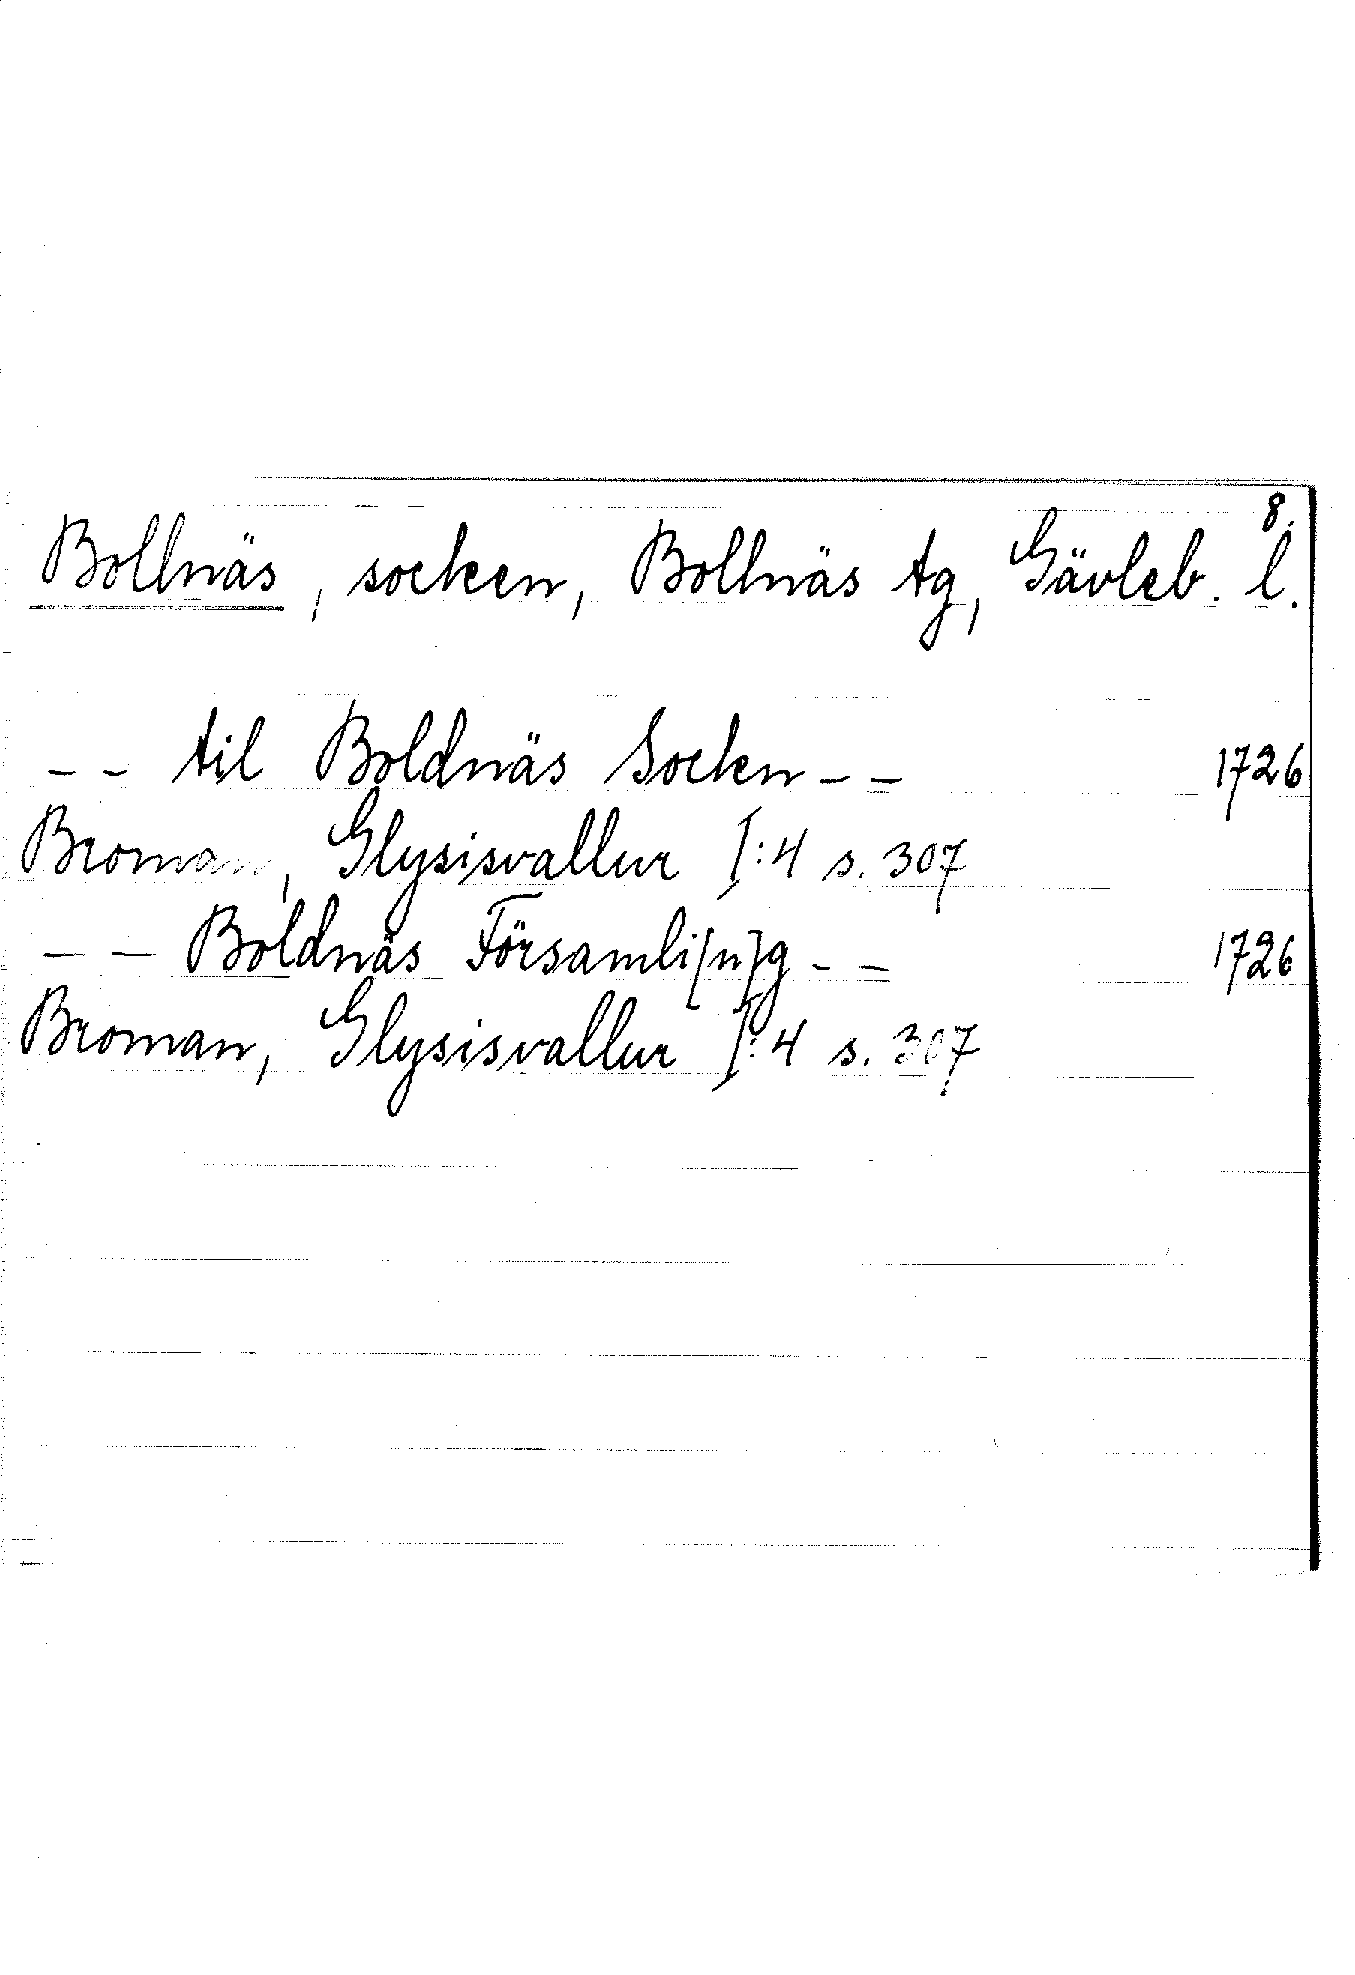 8.
Bollnäs, socken, Bollnäs tg, Gävleb. l.
-- til Boldnäs Socken -- 1726
Broman, Glysisvallur I:4 s. 307
-- Boldnäs Församli[n]g -- 1726
Broman, Glysisvallur I:4 s. 307